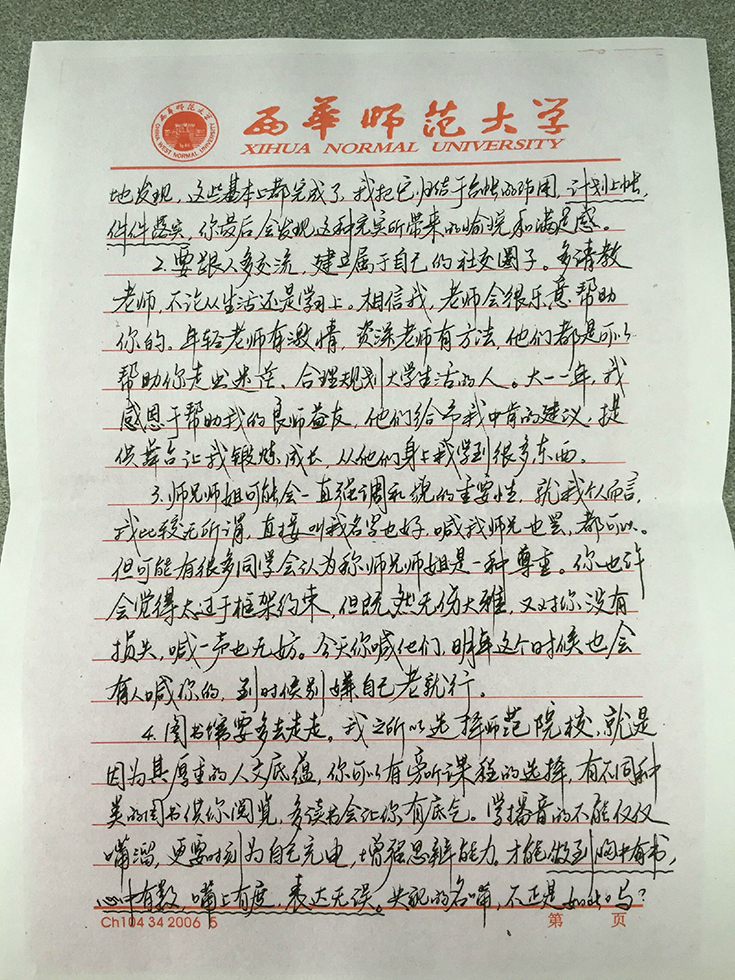 西華师范大学
XIHUA NORMAL UNIVERSITY
地发现，这些基本上都完成了，我把它归结于台帐的作用，计划上帐，
件件落实，你最后会发现这种充实所带来的愉悦和满足感。
2.要跟人多交流，建立属于自己的社交圈子。多请教
老师，不论从生活还是学习上。相信我，老师会很乐意帮助
你的。年轻老师有激情，资深老师有方法，他们都是可以
帮助你走出迷茫、合理规划大学生活的人。大一一年，我
感恩于帮助我的良师益友，他们给予我中肯的建议，提
供舞台让我锻炼成长，从他们身上我学到很多东西。
3.师兄师姐可能会一直强调礼貌的重要性，就我个人而言，
我比较无所谓，直接叫我名字也好，喊我师兄也罢，都可以。
但可能有很多同学会认为称师兄师姐是一种尊重。你也许
会觉得太过于框架约束，但既然无伤大雅，又对你没有
损失，喊一声也无妨。今天你喊他们，明年这个时候也会
有人喊你的，到时候别嫌自己老就行。
4.图书馆要多去走走。我之所以选择师范院校，就是
因为其厚重的人文底蕴，你可以有旁听课程的选择，有不同种
类的图书供你阅览，多读书会让你有底气。学播音的不能仅仅
嘴溜，更要时刻为自己充电，增强思辨能力。才能做到胸中有书，
心中有数，嘴上有度，表达无误。央视的名嘴，不正是如此吗？
Ch104 34 2006 5
第 页
CHINA WEST NORMAL UNIVERSITY
西华师范大学